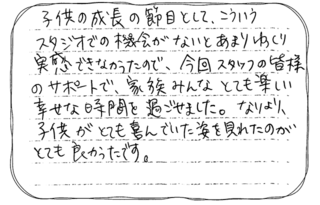 子供の成長の節目として、こういう
スタジオでの機会がないとあまりゆっくり
実感できなかったので、今回スタッフの皆様
のサポートで、家族みんなとても楽しい
幸せな時間を過ごせました。なにより、
子供がとても喜んでいた姿を見れたのが
とても良かったです。